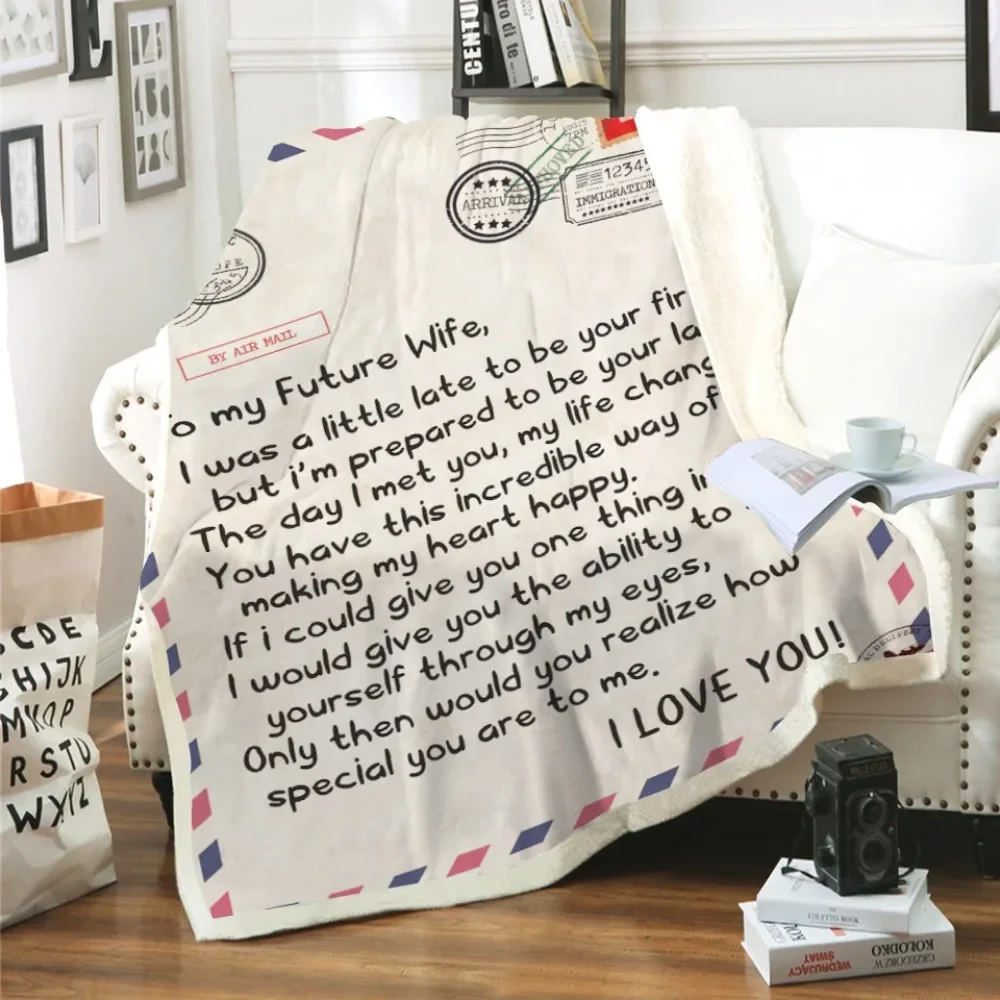 CENTU
ro di le
ARRIVAL
12345
IMMIGRATION
BY AIR MAIL
o my Future Wife,
I was a little late to be your fir
but i'm prepared to be your la
The day I met you, my life chang
You have this incredible way of
making my heart happy.
If i could give you one thing in
I would give you the ability to
yourself through my eyes,
Only then would you realize how
special you are to me.
I LOVE YOU!
CDE
GHIJK
MNOP
RSTU
WXYZ
BOOK
GRZEGORZ W
KOŁODKO
WĘDRUJĄCY
ŚWIAT